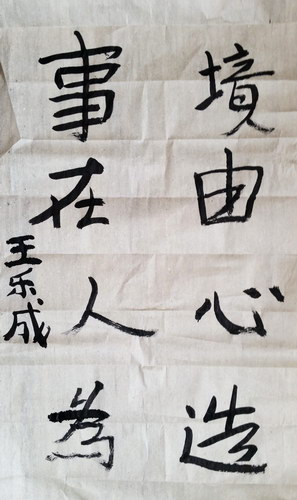 境由心造
事在人為
王乐成